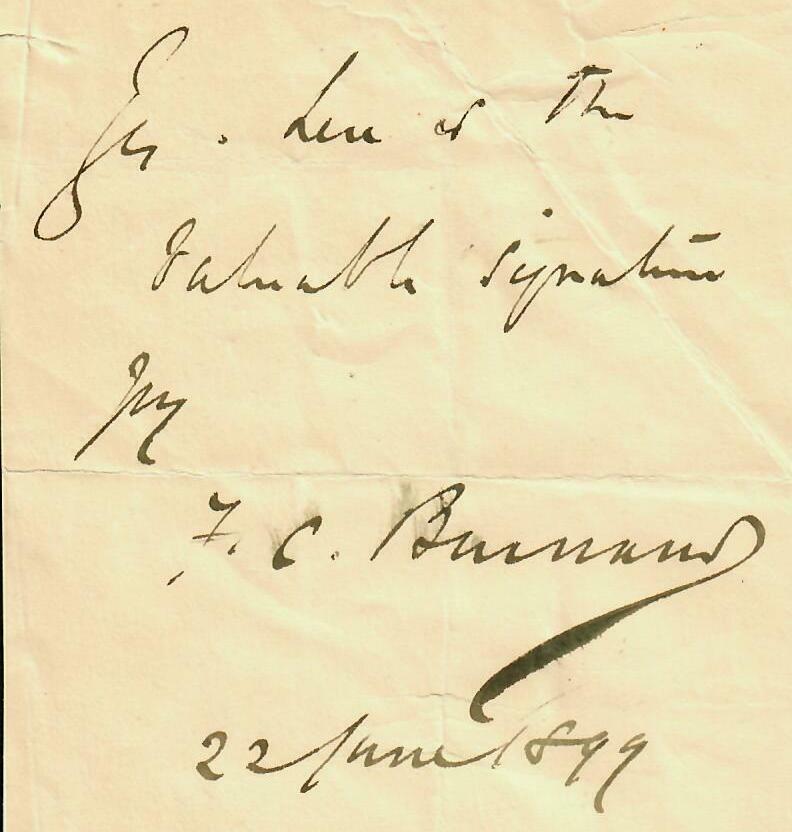 Yes. Here is the
valuable signature
of
F. C. Burnand
22 June 1899